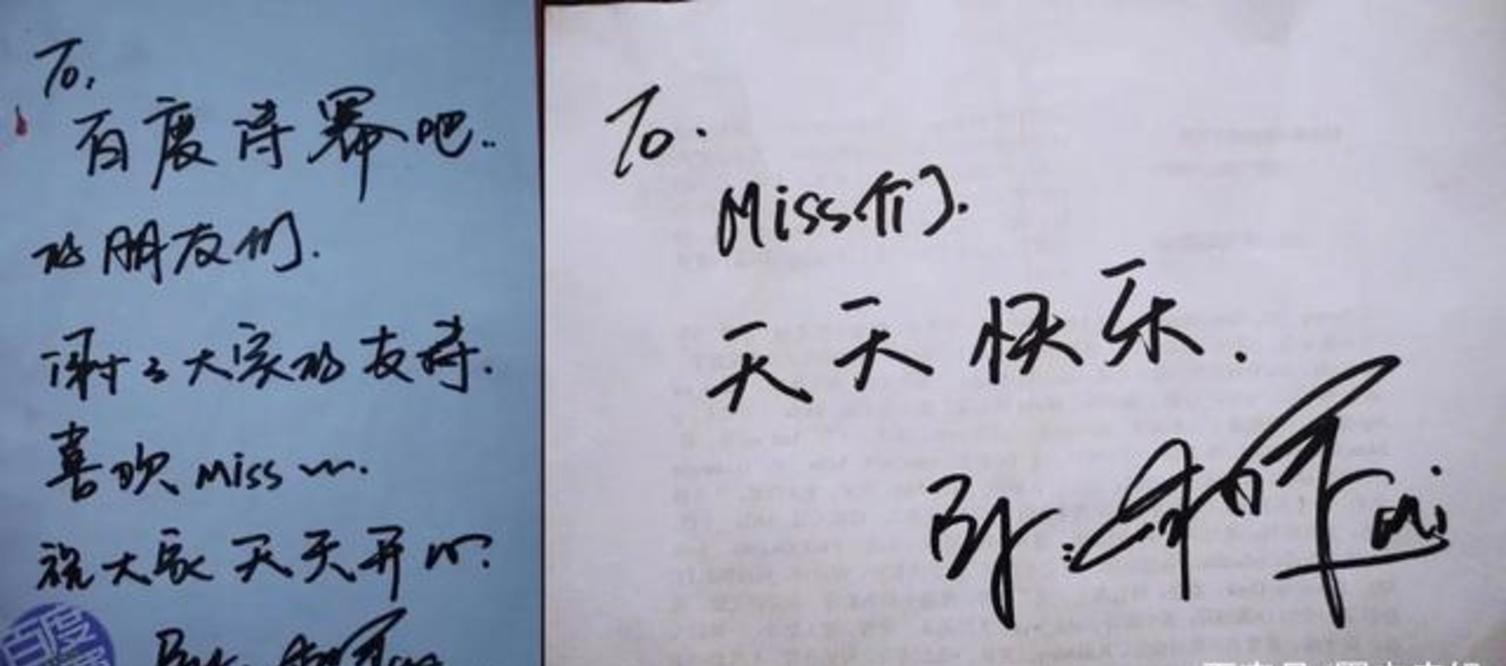 To.
百度诗幂吧..
的朋友们.
谢谢大家的支持.
喜欢 Miss
祝大家天天开心
百度
To.
Miss们.
天天快乐.
By:
Mi